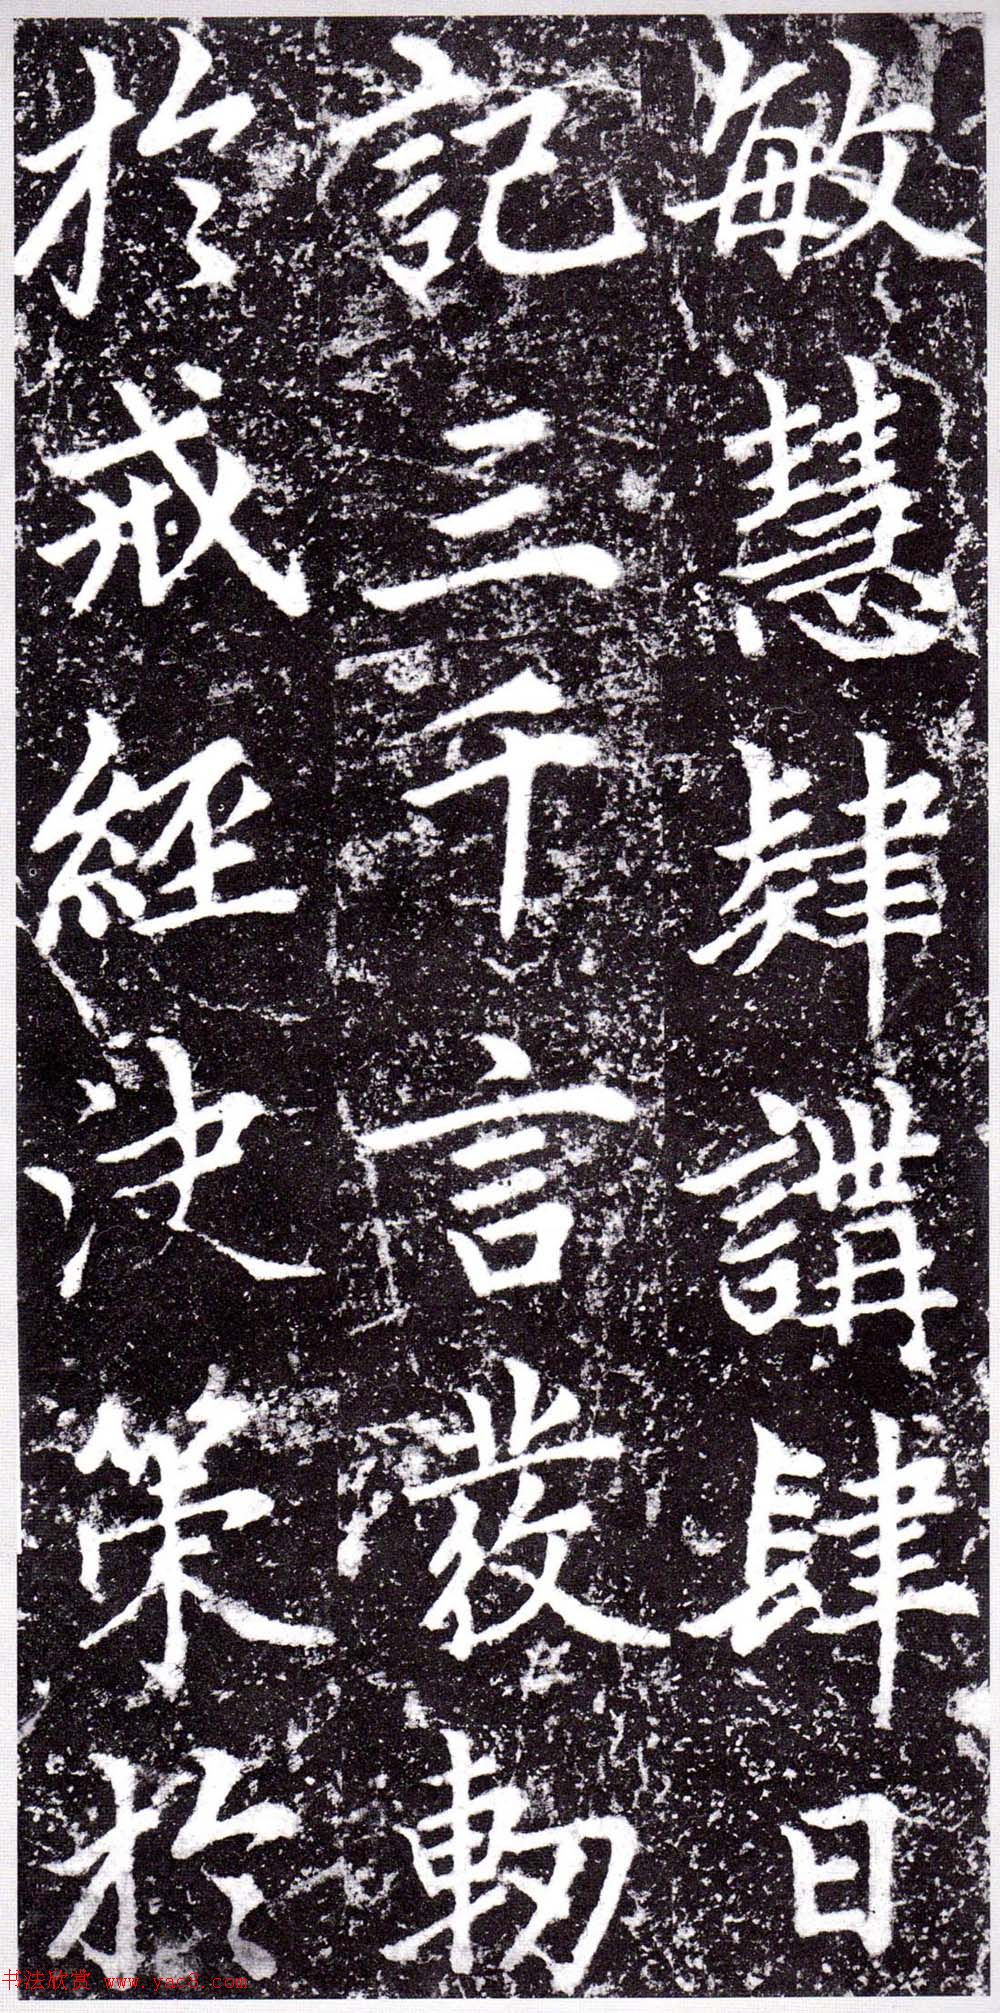 敏慧肄講肆日
記三千言發軔
於戒經決策於
书法欣赏 www.yac8.com